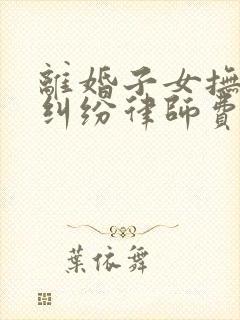 離婚子女撫
糾紛律師費
葉依舞